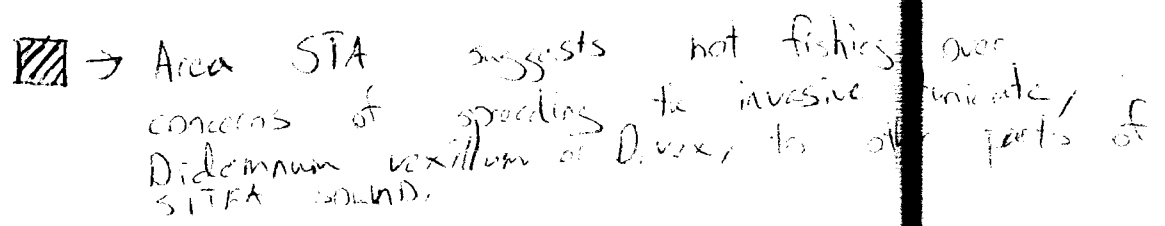 → Area STA suggests not fishing over
concerns of spreading the invasive tunicate,
Didemnum vexillum or D. vex, to other parts of
SITKA SOUND.